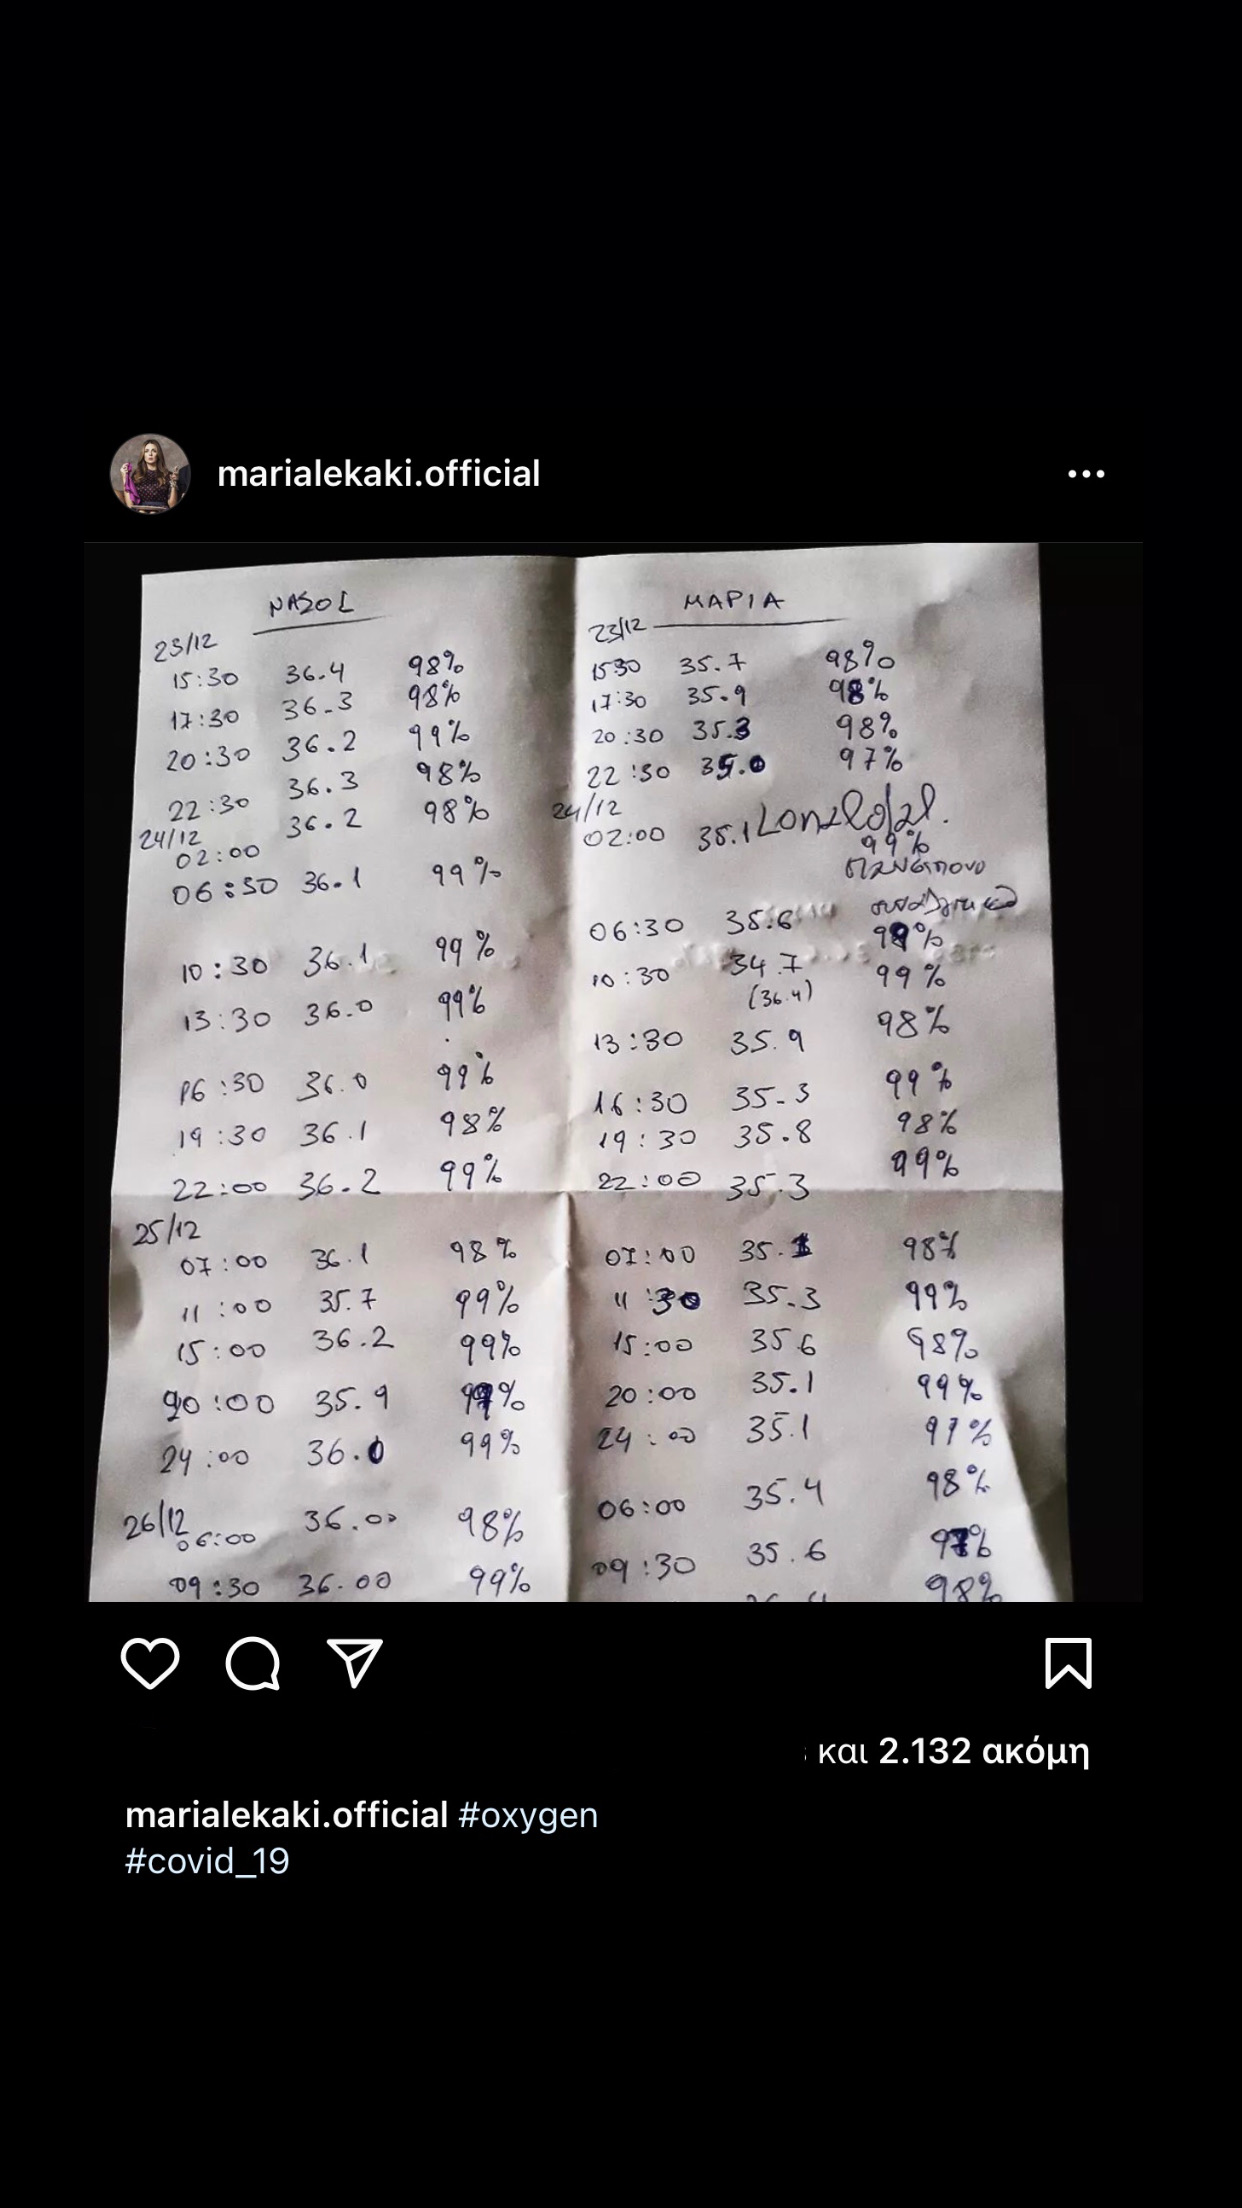 marialekaki.official
NASOL
23/12
15:30 36.4 98%
17:30 36.3 98%
20:30 36.2 99%
22:30 36.3 98%
24/12
02:00 36.2 98%
06:30 36.1 99%
10:30 36.1 99%
13:30 36.0 99%
16:30 36.0 99%
19:30 36.1 98%
22:00 36.2 99%
25/12
07:00 36.1 98%
11:00 35.7 99%
15:00 36.2 99%
20:00 35.9 99%
24:00 36.0 99%
26/12
06:00 36.00 98%
09:30 36.00 99%
ΜΑΡΙΑ
23/12
15:30 35.7 98%
17:30 35.9 98%
20:30 35.3 98%
22:30 35.0 97%
24/12
02:00 35.1 Lonalgal.
99%
06:30 35.6 98%
10:30 34.7 99%
(36.4)
13:30 35.9 98%
16:30 35.3 99%
19:30 35.8 98%
22:00 35.3 99%
07:00 35.1 98%
11:30 35.3 99%
15:00 35.6 98%
20:00 35.1 99%
24:00 35.1 97%
06:00 35.4 98%
09:30 35.6 97%
98%
και 2.132 ακόμη
marialekaki.official #oxygen
#covid_19